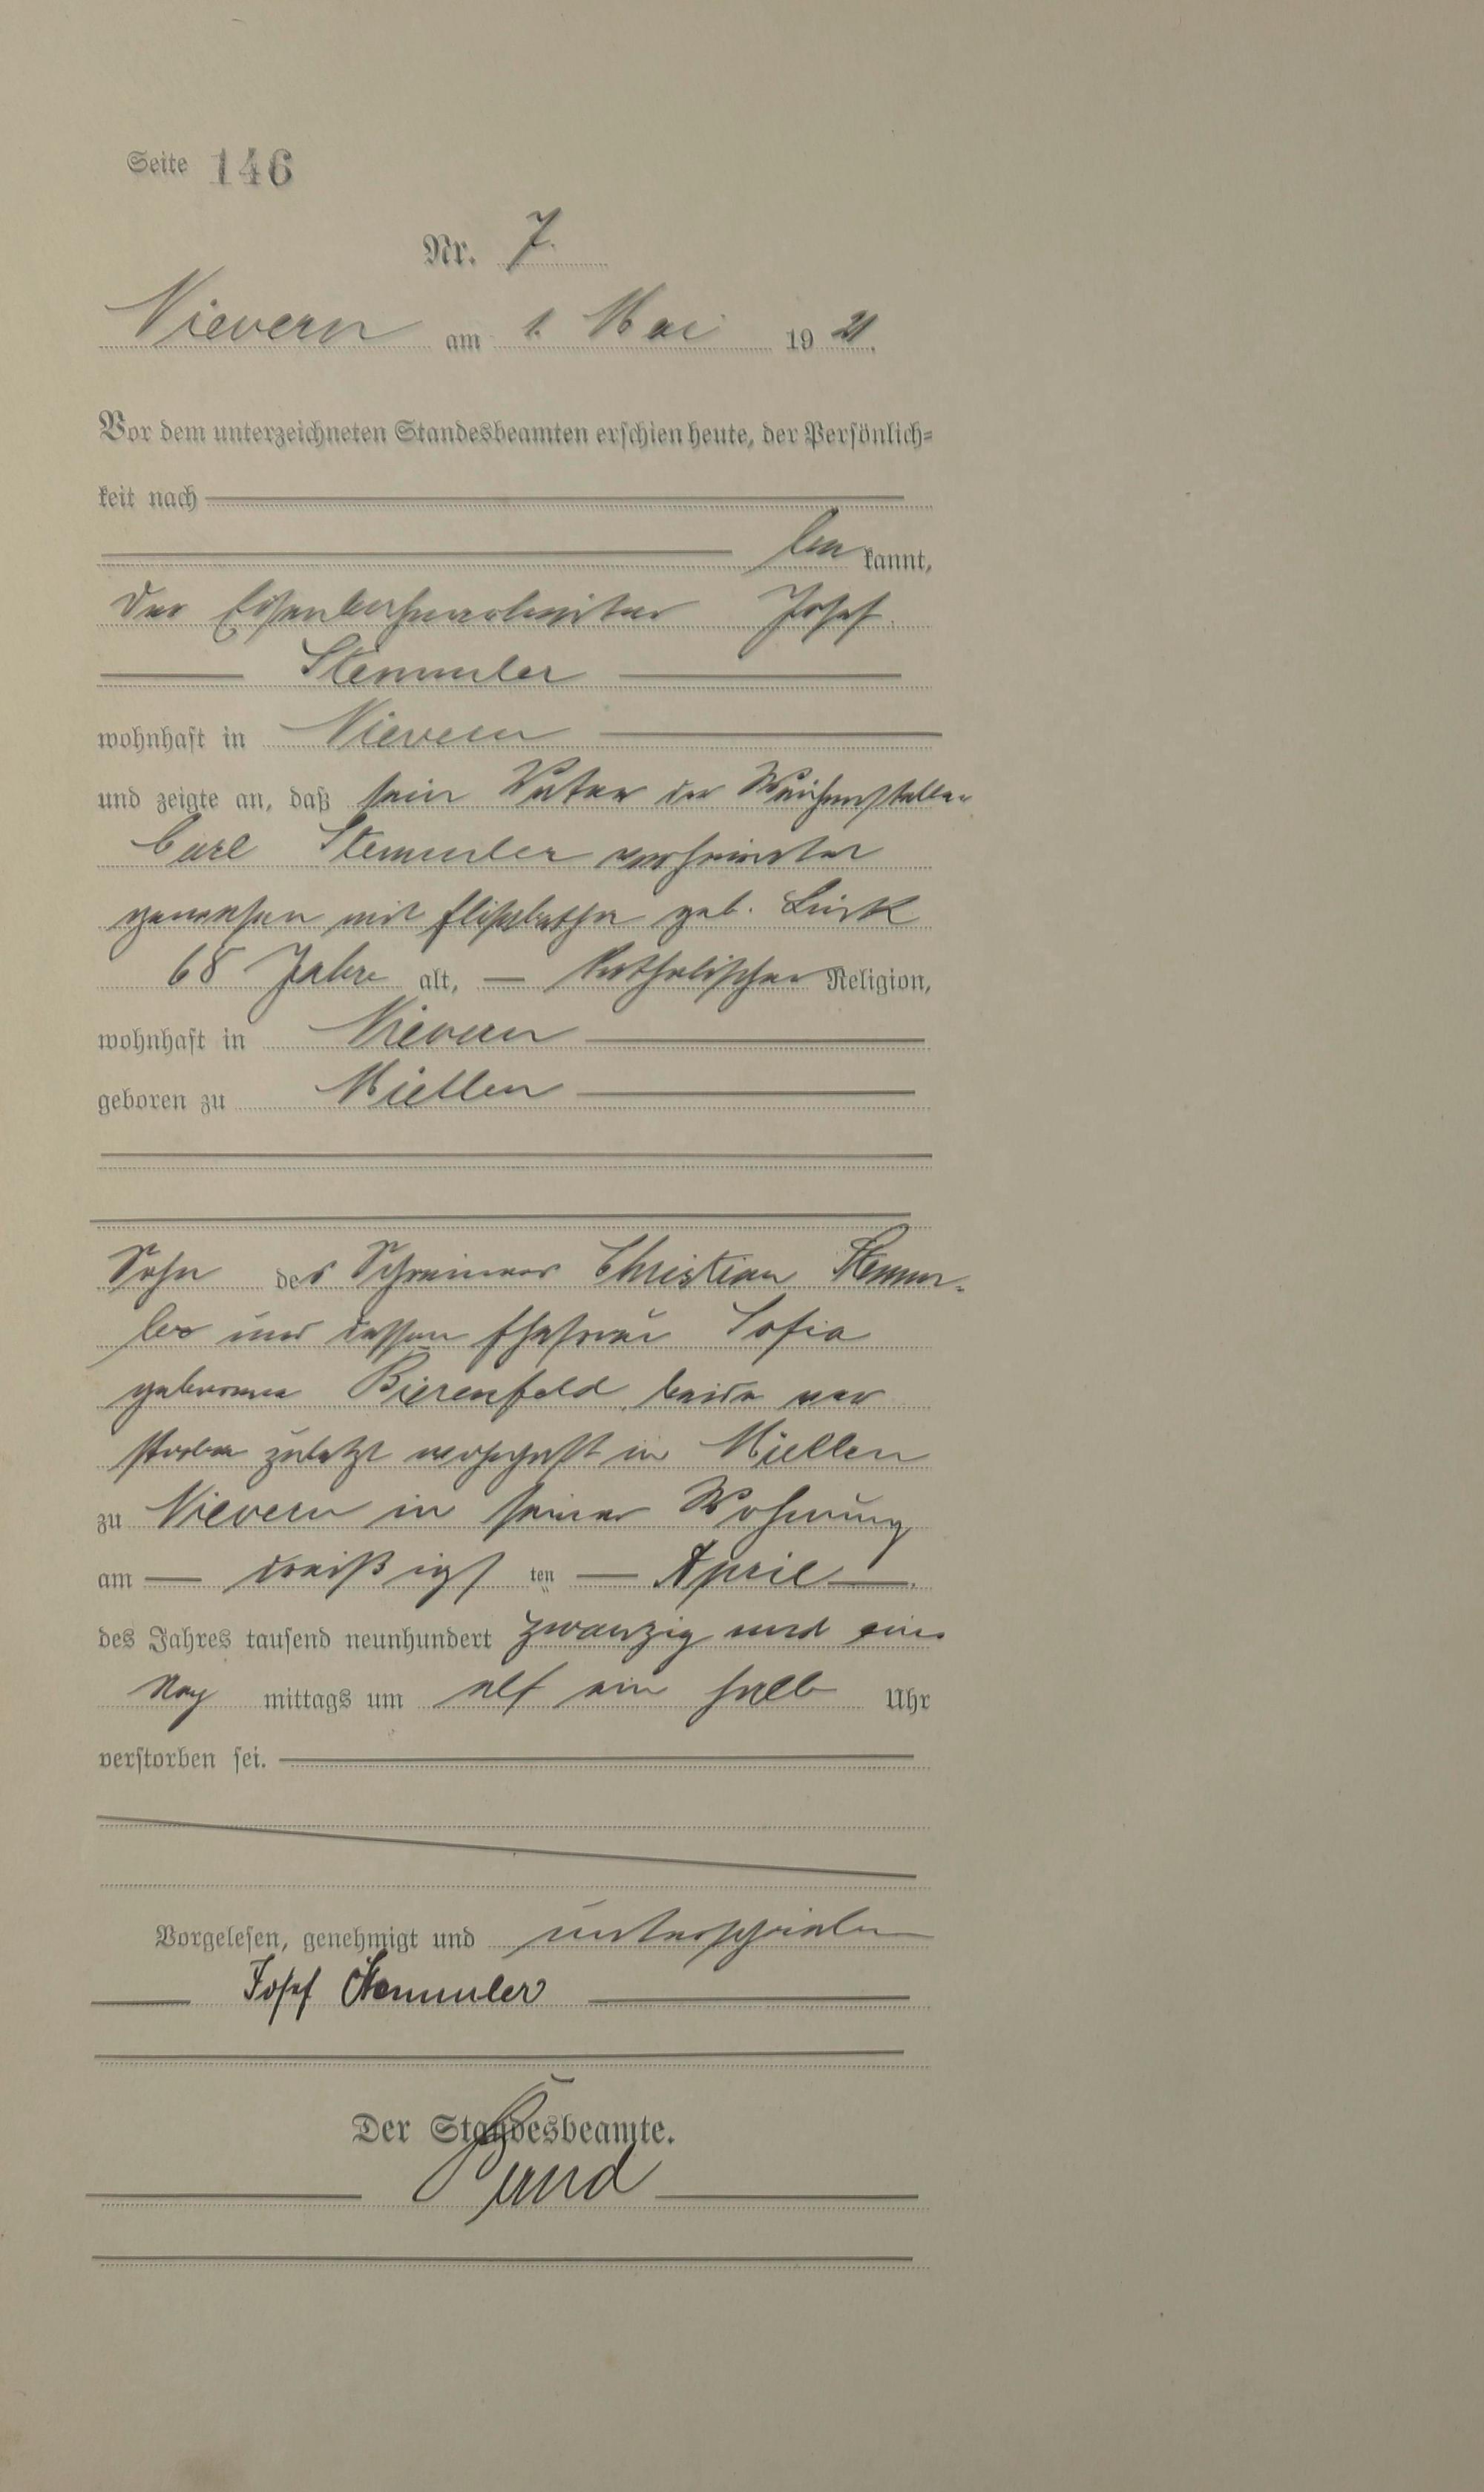 Seite 146
Nr. 7.
Nievern am 1. Mai 1921.
Vor dem unterzeichneten Standesbeamten erschien heute, der Persönlich=
keit nach
bekannt,
der Eisenbahnarbeiter Josef
Stemmler
wohnhaft in Nievern
und zeigte an, daß sein Vater der Weichensteller
Carl Stemmler verheiratet
gewesen mit Elisabetha geb.
68 Jahre alt, — katholischer Religion,
wohnhaft in Nievern
geboren zu Miellen
Sohn des Schreiners Christian Stemm-
ler und dessen Ehefrau Sofia
geborene Bierenfeld, beide ver
storben zuletzt wohnhaft in Miellen
zu Nievern in seiner Wohnung
am — dreißigsten — April —
des Jahres tausend neunhundert zwanzig und eins
Nach mittags um elf ein halb Uhr
verstorben sei.
Vorgelesen, genehmigt und unterschrieben
Josef Stemmler
Der Standesbeamte.